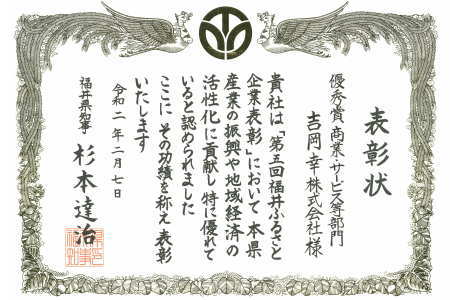 表彰状
優秀賞 商業・サービス等部門
吉岡幸株式会社 様
貴社は「第五回福井ふるさと
企業表彰」において 本県
産業の振興や地域経済の
活性化に貢献し特に優れて
いると認められました
ここに その功績を称え 表彰
いたします
令和二年二月七日
福井県知事 杉本達治